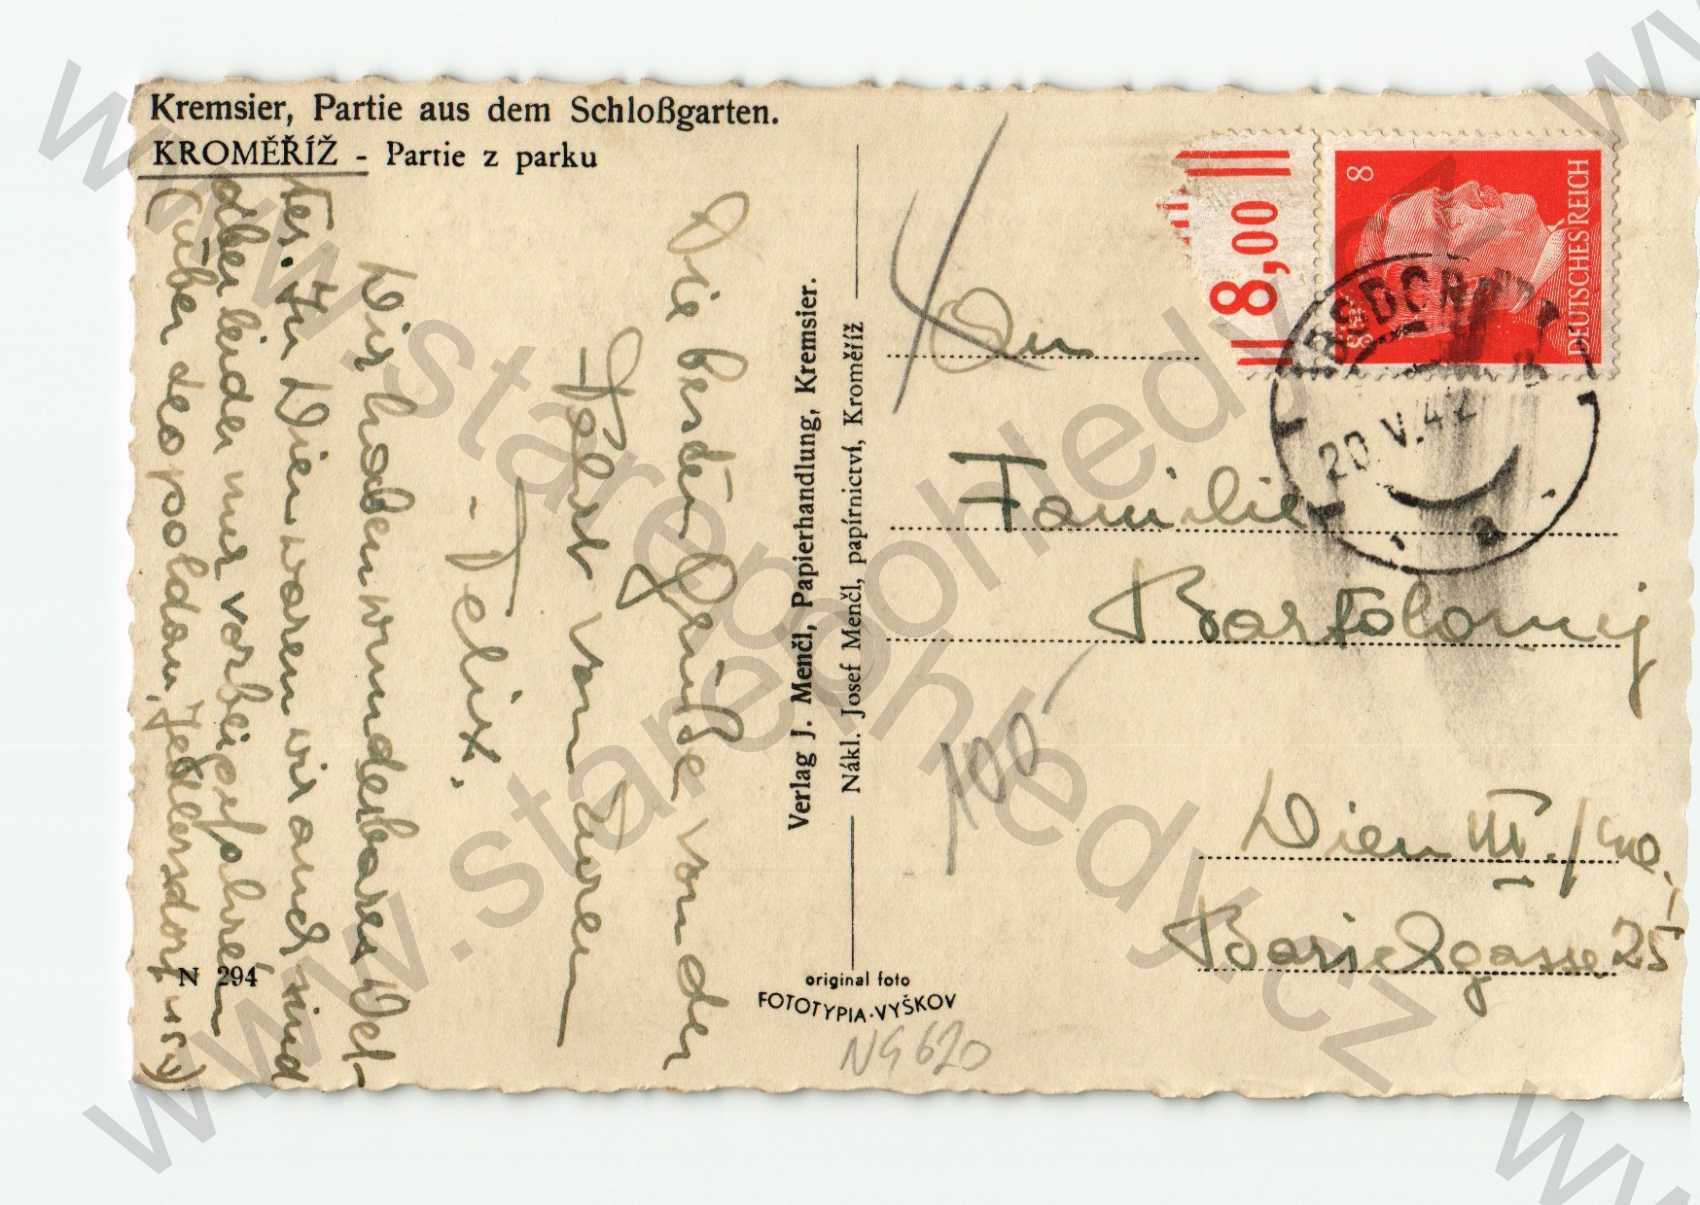 Kremsier, Partie aus dem Schloßgarten.
KROMĚŘÍŽ - Partie z parku
Die besten Grüße von der
Fahrt von Euren
Felix.
Wir haben wunderbares Wet-
ter. In Wien waren wir auch sind
aber leider nur vorbeigefahren
(über Leopoldau, Jedlersdorf usw)
N 294
Verlag J. Menčl, Papierhandlung, Kremsier.
Nákl. Josef Menčl, papírnictví, Kroměříž
original foto
FOTOTYPIA-VYŠKOV
N4620
8,00
8
8
DEUTSCHES REICH
20.V.42
a
An
Familie
Bartolomej
Wien III./
Barichgasse 25
100
www.starepohledy.cz
www.starepohledy.cz